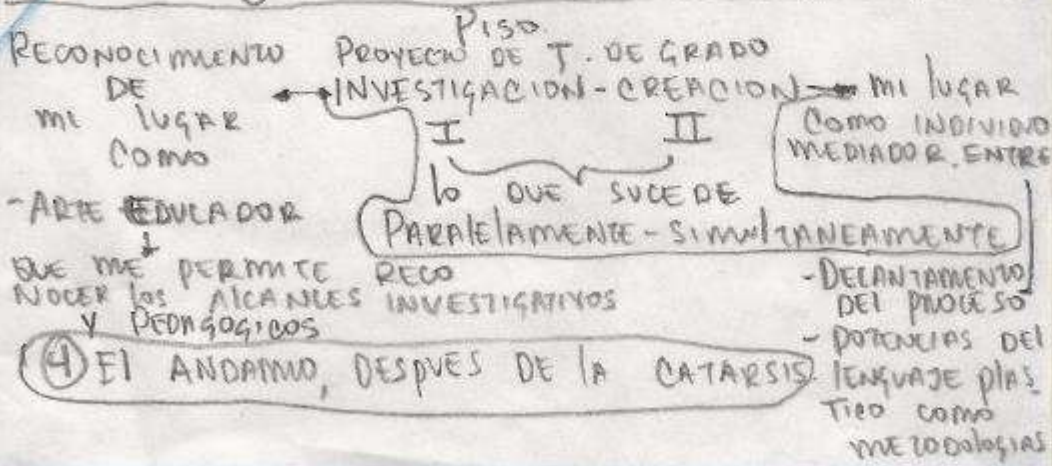 PISO
RECONOCIMIENTO
DE
MI LUGAR
COMO
- ARTE EDUCADOR
QUE ME PERMITE RECO
NOCER los AlCANCES INVESTIGATIVOS
Y PEDAGOGICOS
PROYECTO DE T. DE GRADO
INVESTIGACION-CREACION
I II
lo QUE SUCEDE
PARAlElAMENTE-SIMUlTANEAMENTE
MI lUGAR
COMO INDIVIDUO
MEDIADOR ENTRE
- DECANTAMIENTO
DEl PROCESO
- POTENCIAS DEl
lENGUAJE PlAS
TICO COMO
METODOlOGIAS
4 El ANDAMIO, DESPUES DE lA CATARSIS